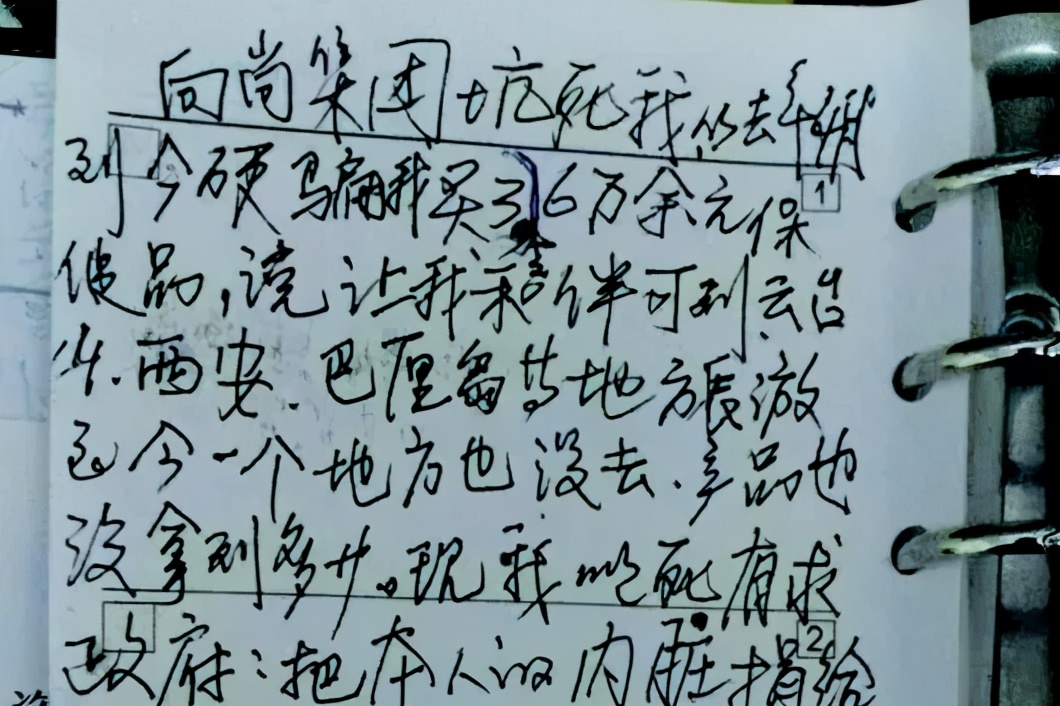 向尚集团坑死我,从去年
到今硬骗我买了16万余元保
1
健品,说让我和老伴可到云台
山.西安.巴厘岛等地方旅游
至今一个地方也没去.产品也
没拿到多少。现我以死有求
2
政府:把本人的内脏捐给